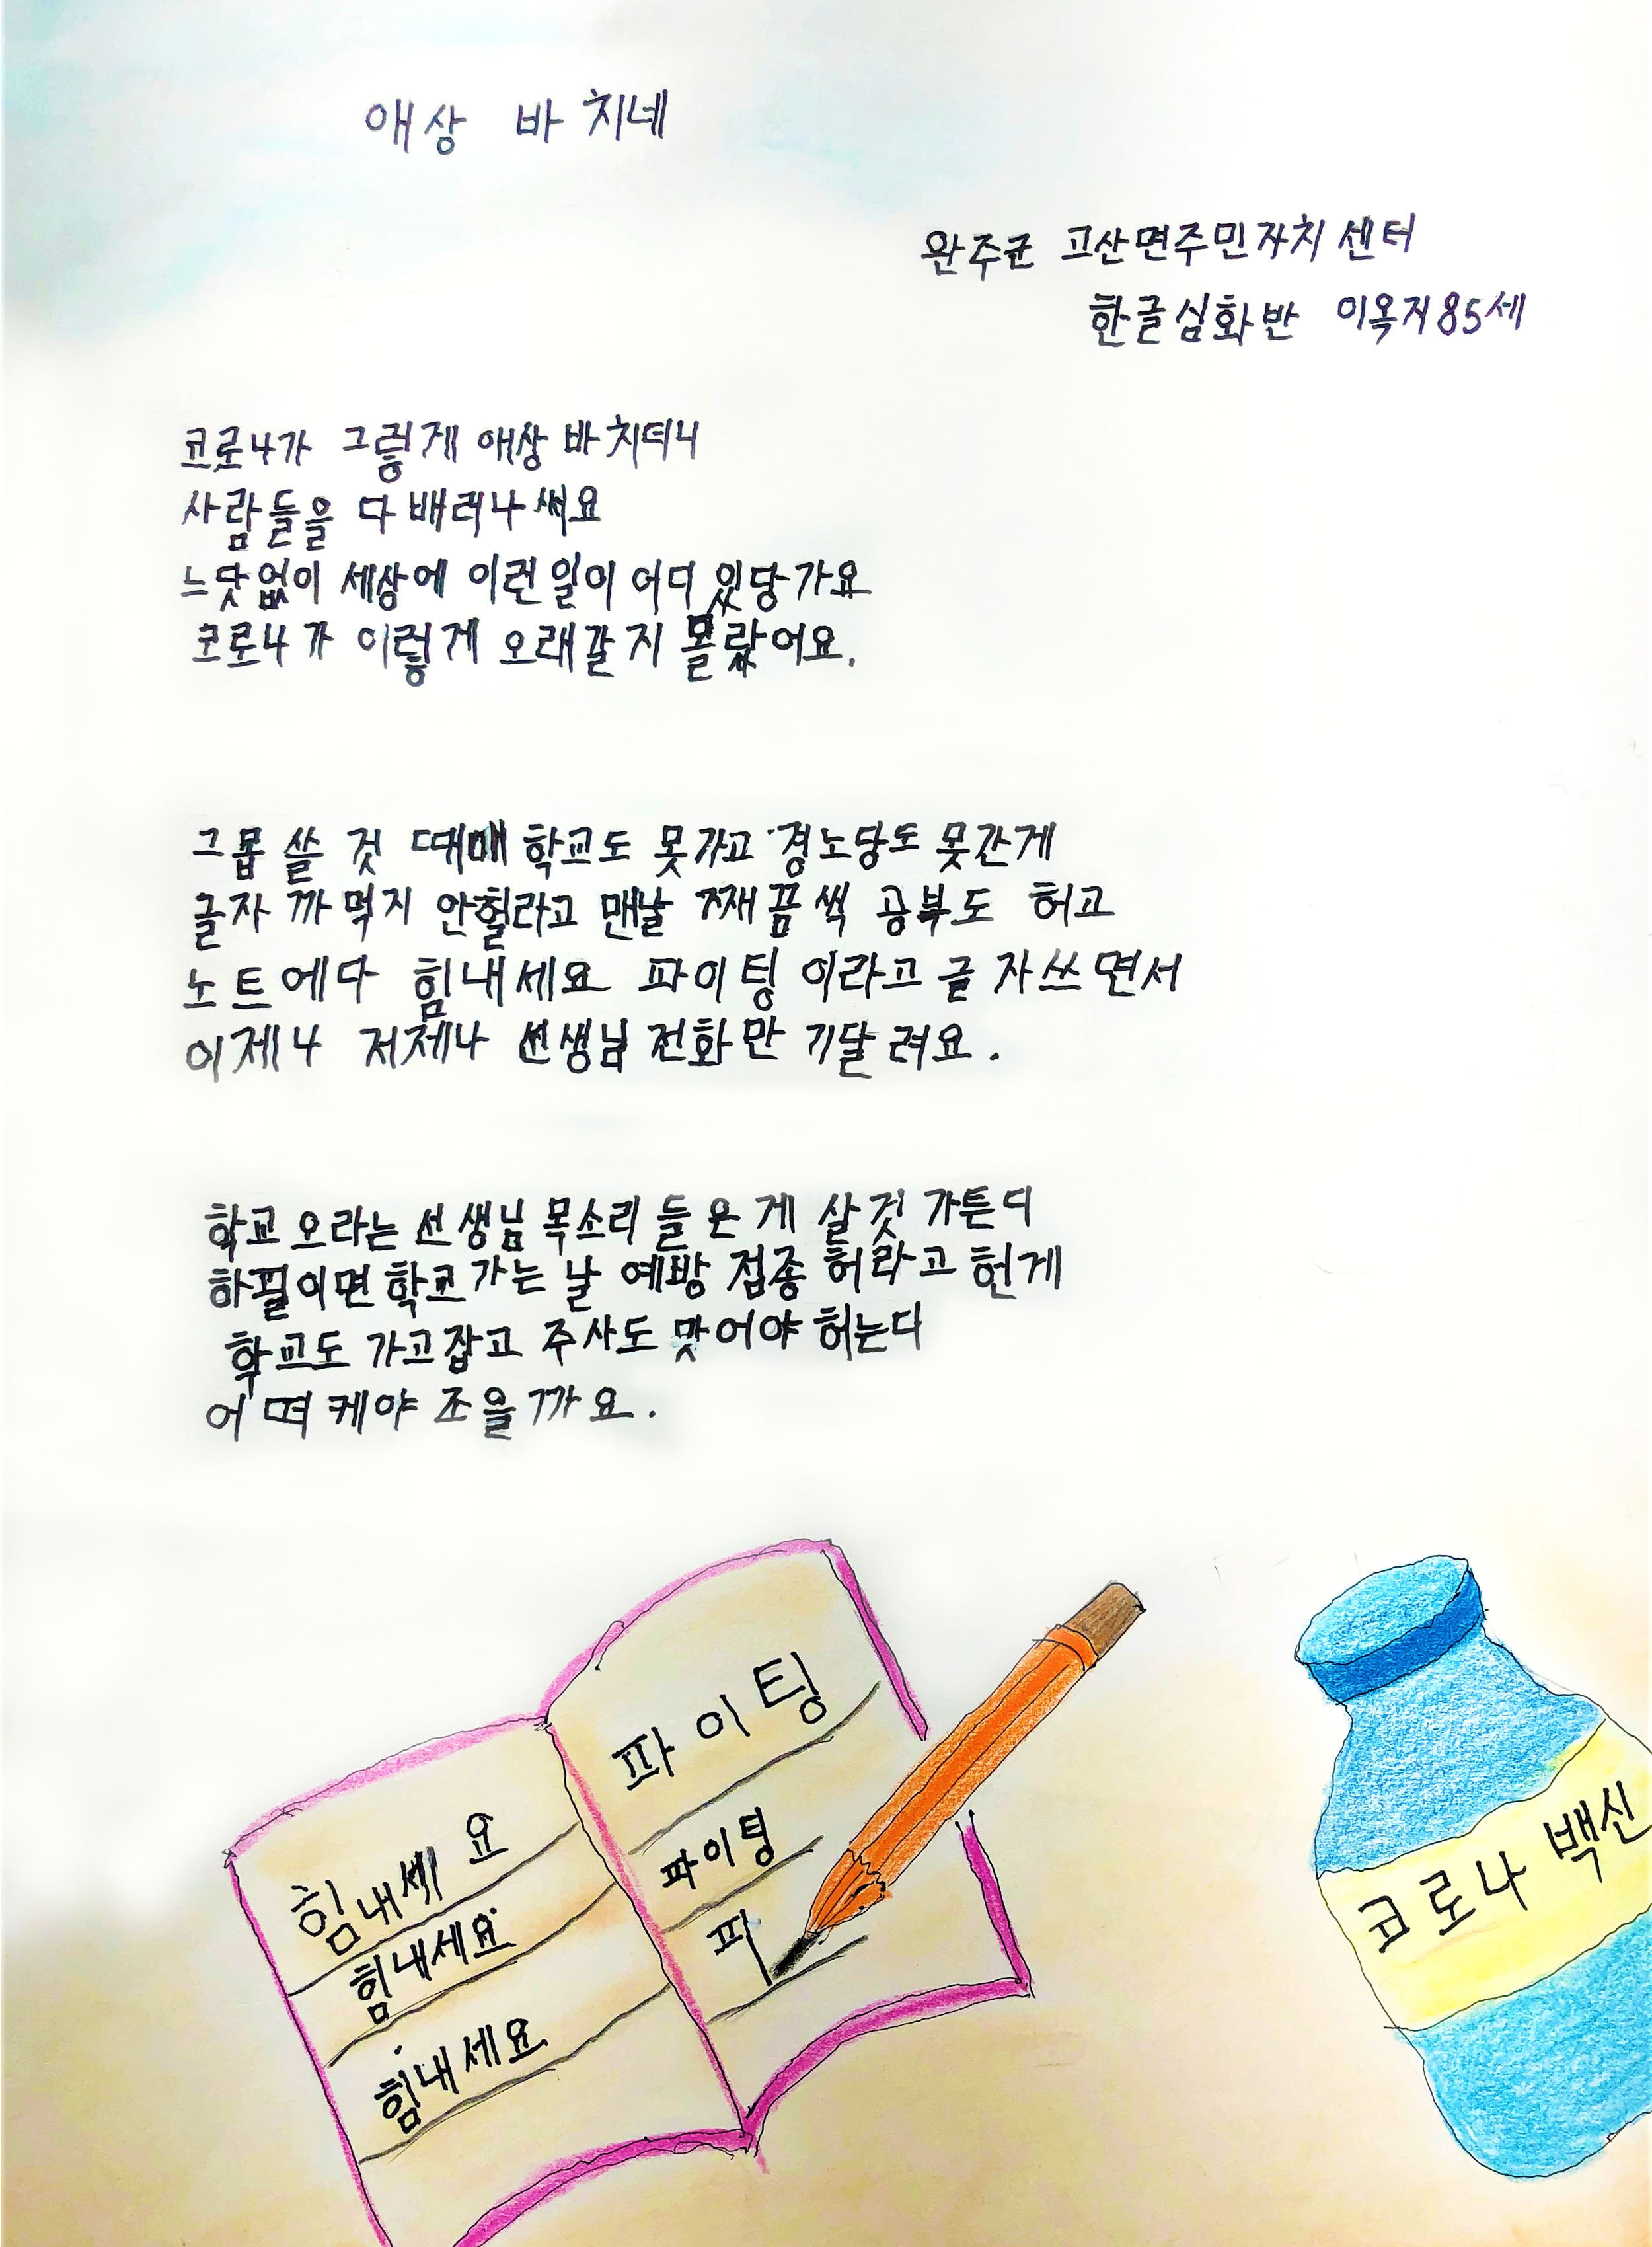 애상 바 치네
완주군 고산면주민자치 센터
한글심화반 이옥지85세
코로나가 그렇게 애상 바 치더니
사람들을 다 배려나써요
느닷없이 세상에 이런일이 어디 있당가요
코로나가 이렇게 오래갈지 몰랐어요.
그몹 쓸 것 때매 학교도 못가고 경노당도 못간게
글자 까먹지 안헐라고 맨날 째끔씩 공부도 허고
노트에다 힘내세요 파이팅 이라고 글자쓰면서
이제나 저제나 선생님 전화만 기달려요.
학교 오라는 선생님 목소리 들은게 살것 가튼디
하필이면 학교가는 날 예방 접종 허라고 헌게
학교도 가고잡고 주사도 맞어야 허는디
어떠케야 조을까요.
파이팅
파이팅
파
힘내세요
힘내세요
힘내세요
코로나 백신